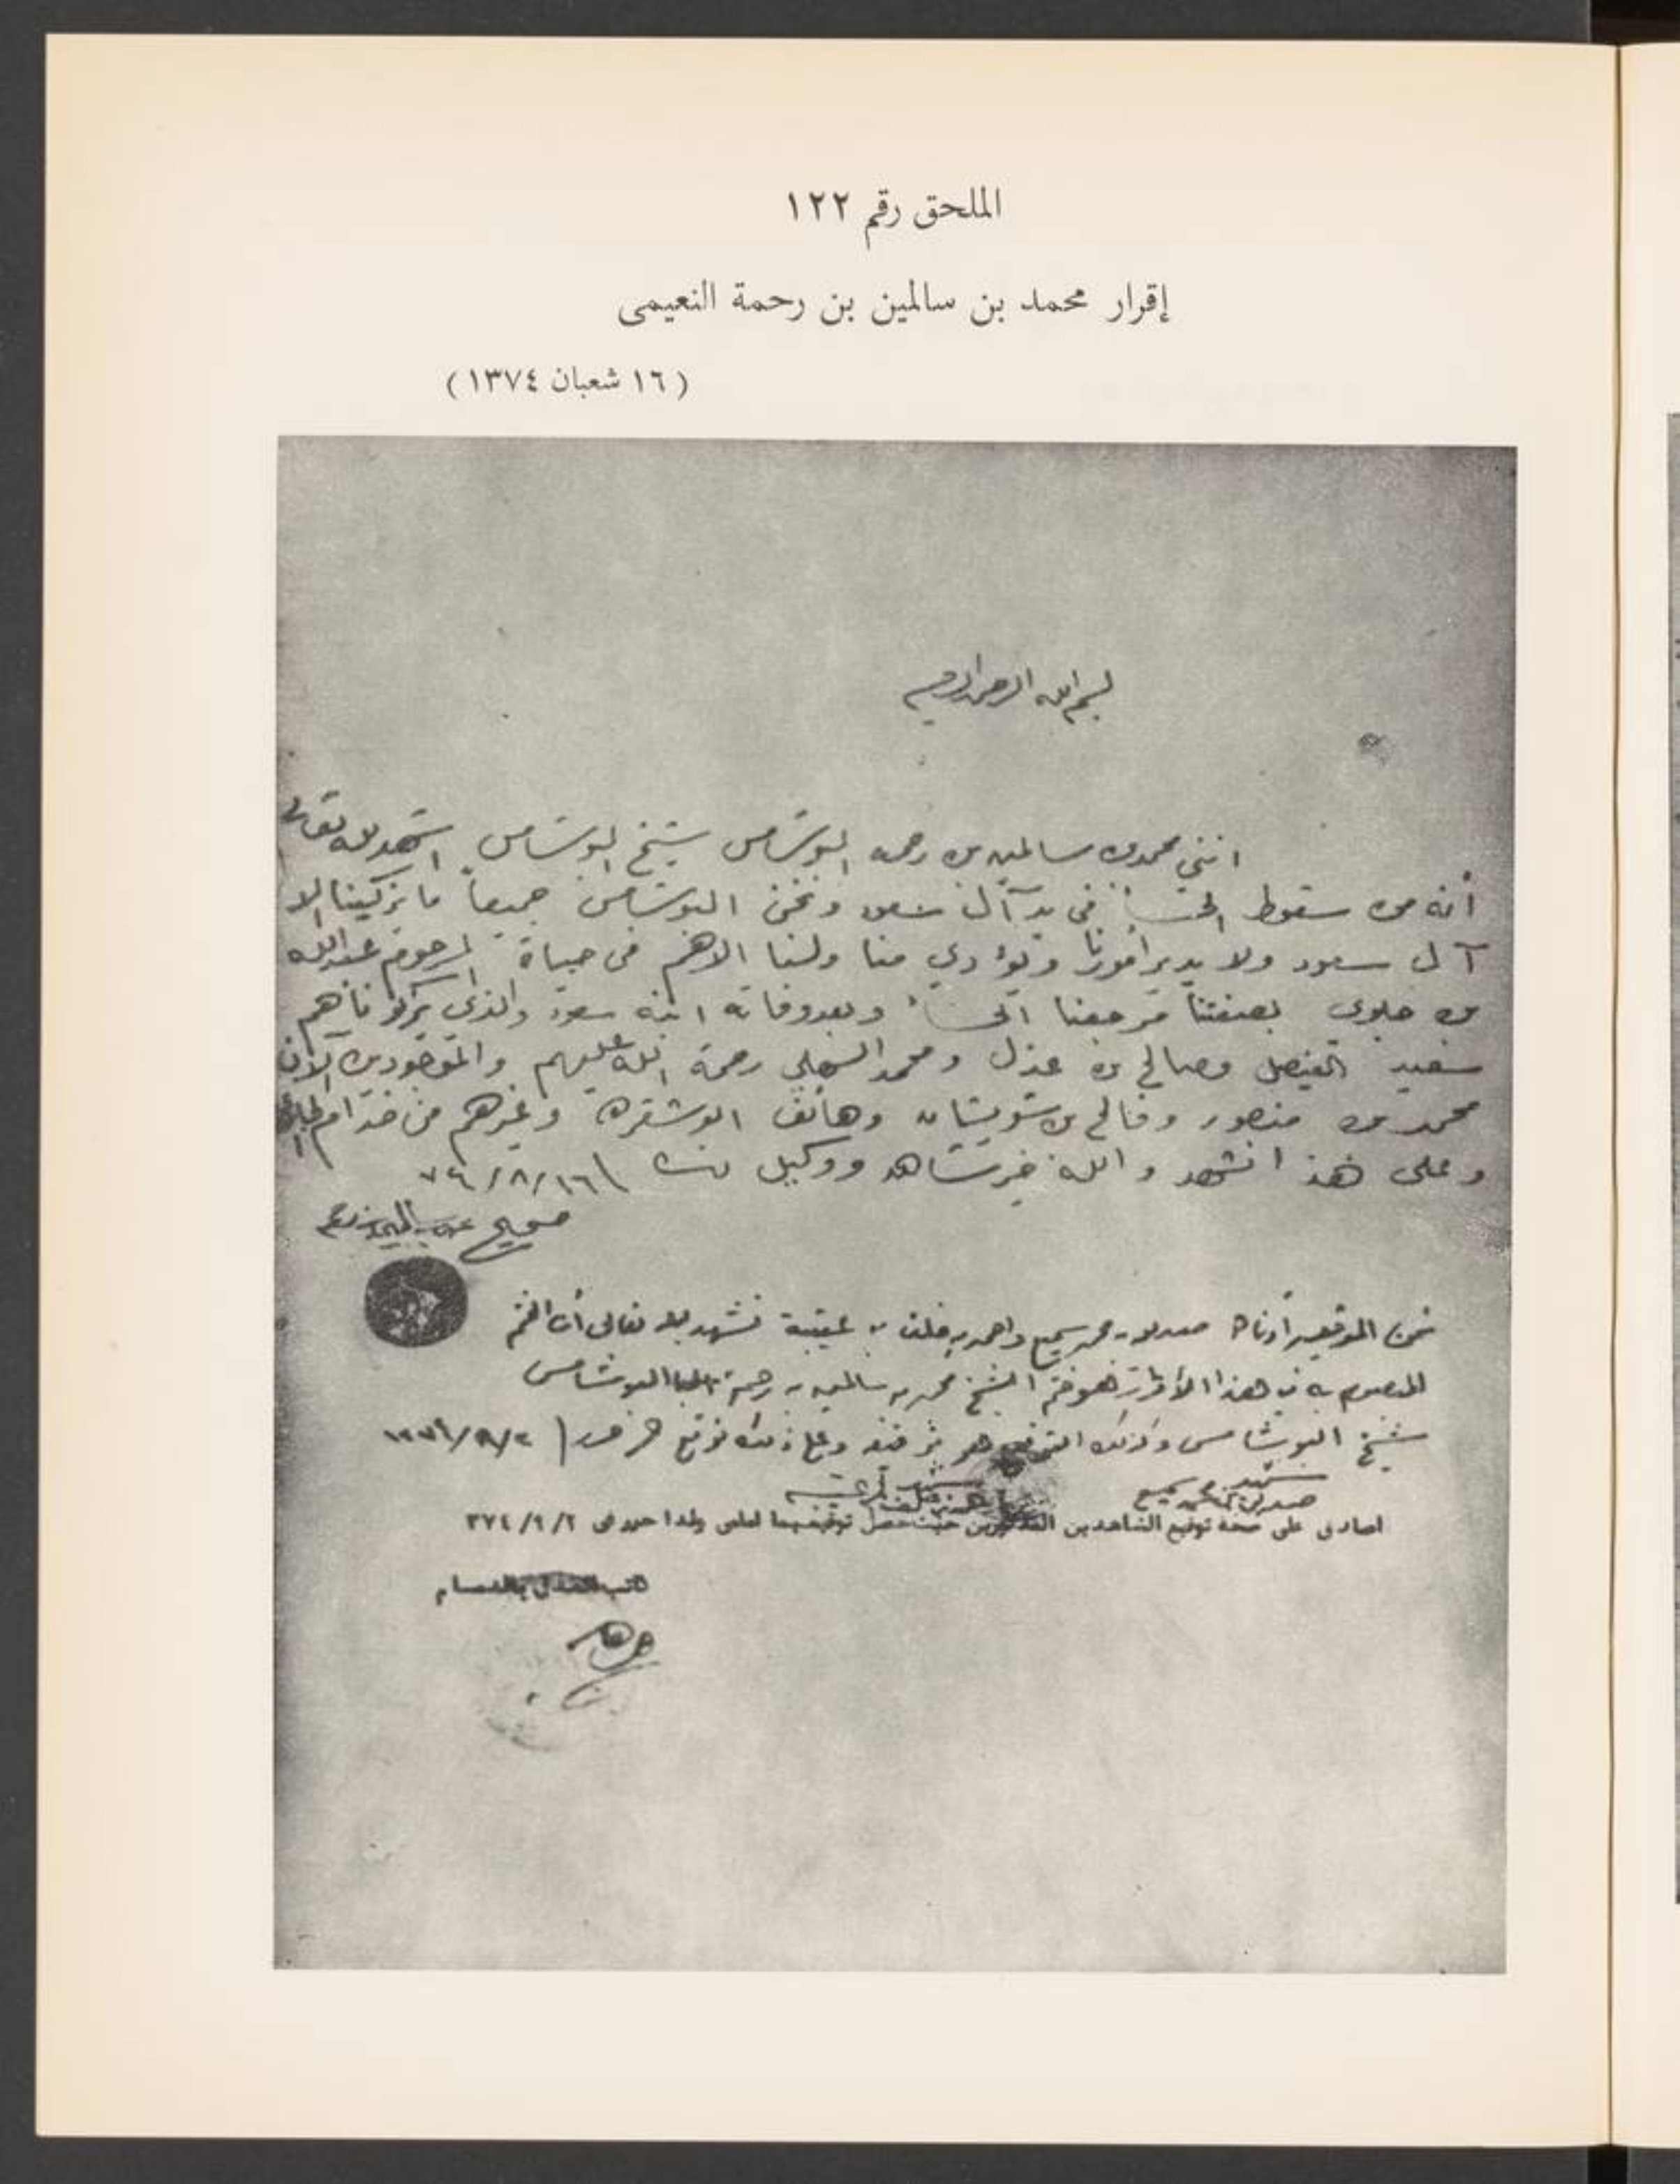 الملحق رقم ١٢٢
إقرار محمد بن سالمين بن رحمة النعيمى
( ١٦ شعبان ١٣٧٤ )
بسم الله الرحمن الرحيم
انني محمد بن سالمين بن رحمه البوشامس شيخ البوشامس اشهد لله تعالى
أنه من سقوط الحسا في يد آل سعود ونحن البوشامس جميعاً ما يزكينا الا
آل سعود ولا يدير أمورنا ويؤدي منا ولنا الا هم في حياة المرحوم عبدالله
بن جلوي بصفتنا مرجعنا الحسا وبعد وفاته ابنه سعود والذي يزكونا هم
سعيد الفيصل وصالح بن عذل ومحمد السهلي رحمة الله عليهم والموجودين الان
محمد بن منصور وفالح بن شويشان وهائف ابوشقره وغيرهم من خدام
وعلى هذا انشهد والله خير شاهد ووكيل ١٦/٨/٧٤
صحيح
نحن الموقعين أدناه محمد سميح واحمد بن خلف بن عتيبة نشهد بالله تعالى أن الختم
المبصوم به في هذا الأقرار هو ختم الشيخ محمد بن سالمين بن رحمة البوشامس
شيخ البوشامس وكذلك التوقيع هو توقيعه وعلى ذلك نوقع
شهد
محمد سميح
اصادق على صحة توقيع الشاهدين المذكورين حيث حصل توقيعهما امامي ولهذا حرر في ٣٧٤/٩/٢
كاتب العدل بالدمام